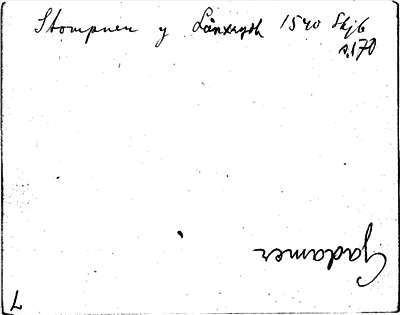 Stompnen y Lånxerydh 1540 Skjb
s.170
Gadamer
7